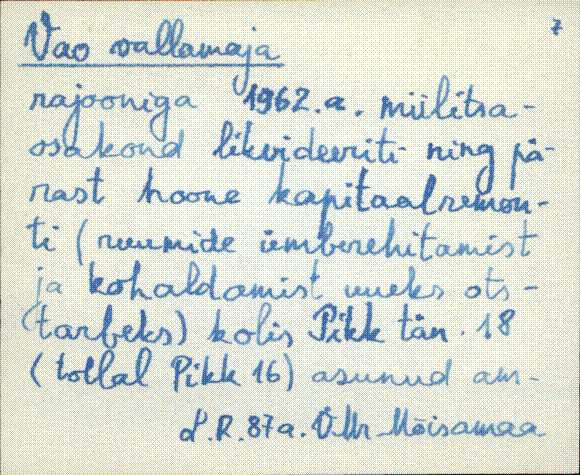 7
Vao vallamaja
rajooniga 1962.a. miilitsa-
osakond likvideeriti ning pä-
rast hoone kapitaalremon-
ti (ruumide ümberehitamist
ja kohaldamist uueks ots-
tarbeks) kolis Pikk tän. 18
(tollal Pikk 16) asunud am-
L.R. 87a. Ü. Mõisamaa